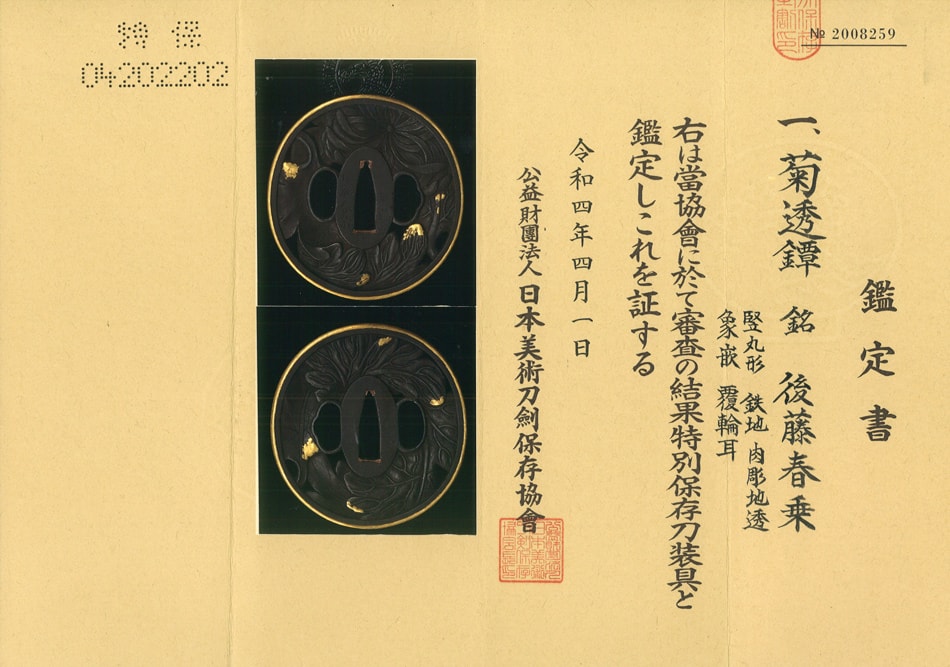 № 2008259
鑑定書
一、菊透鐔 銘 後藤春乗
竪丸形 鉄地 肉彫地透
象嵌 覆輪耳
右は當協會に於て審査の結果特別保存刀装具と
鑑定しこれを証する
令和四年四月一日
公益財團法人 日本美術刀劍保存協會
特保
04202202